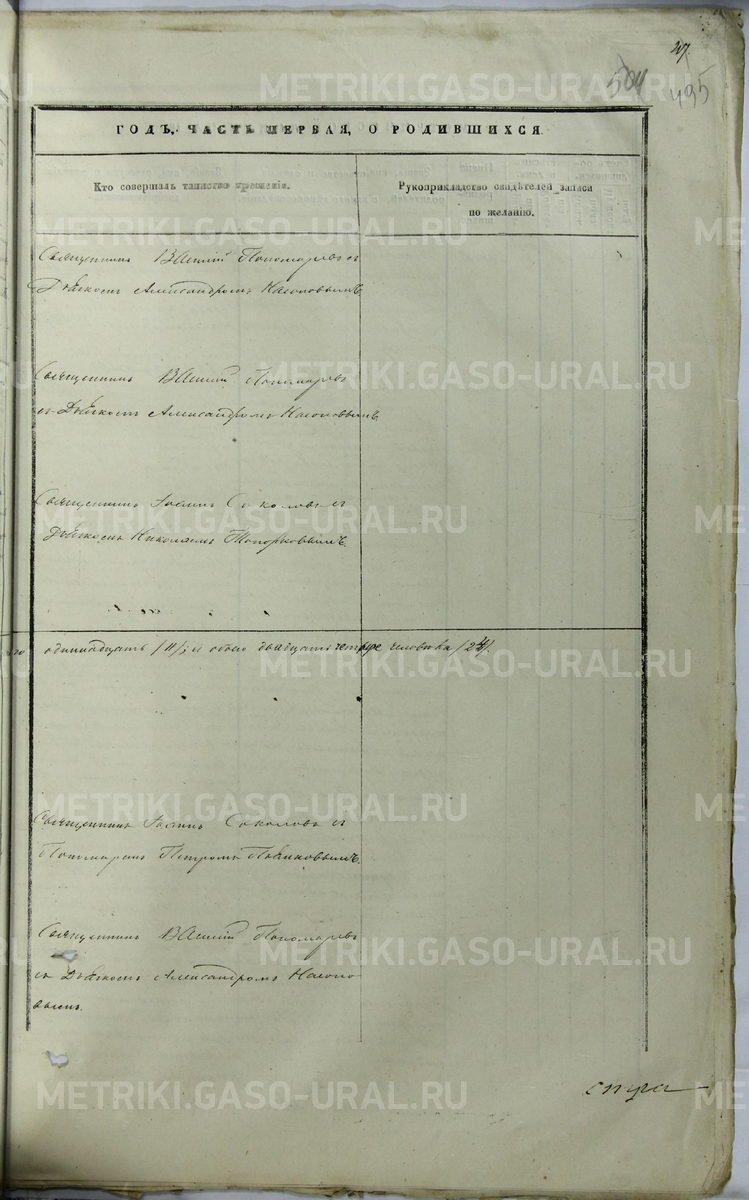 27.
504
495
ГОДЪ, ЧАСТЬ ПЕРВАЯ, О РОДИВШИХСЯ
Кто совершалъ таинство крещенія.
Рукоприкладство свидѣтелей записи
по желанію.
Священникъ Василій Пономаревъ съ
Дьячкомъ Александромъ Насоновымъ
Священникъ Василій Пономаревъ
съ Дьячкомъ Александромъ Насоновымъ
Священникъ Іоаннъ Соколовъ съ
Дьячкомъ Николаемъ Топорковымъ.
одиннадцать /11/; и обоего двадцать четыре человѣка /24/.
Священникъ Іоаннъ Соколовъ съ
Пономаремъ Петромъ
Священникъ Василій Пономаревъ
съ Дьячкомъ Александромъ Насоно-
вымъ.
METRIKI.GASO-URAL.RU